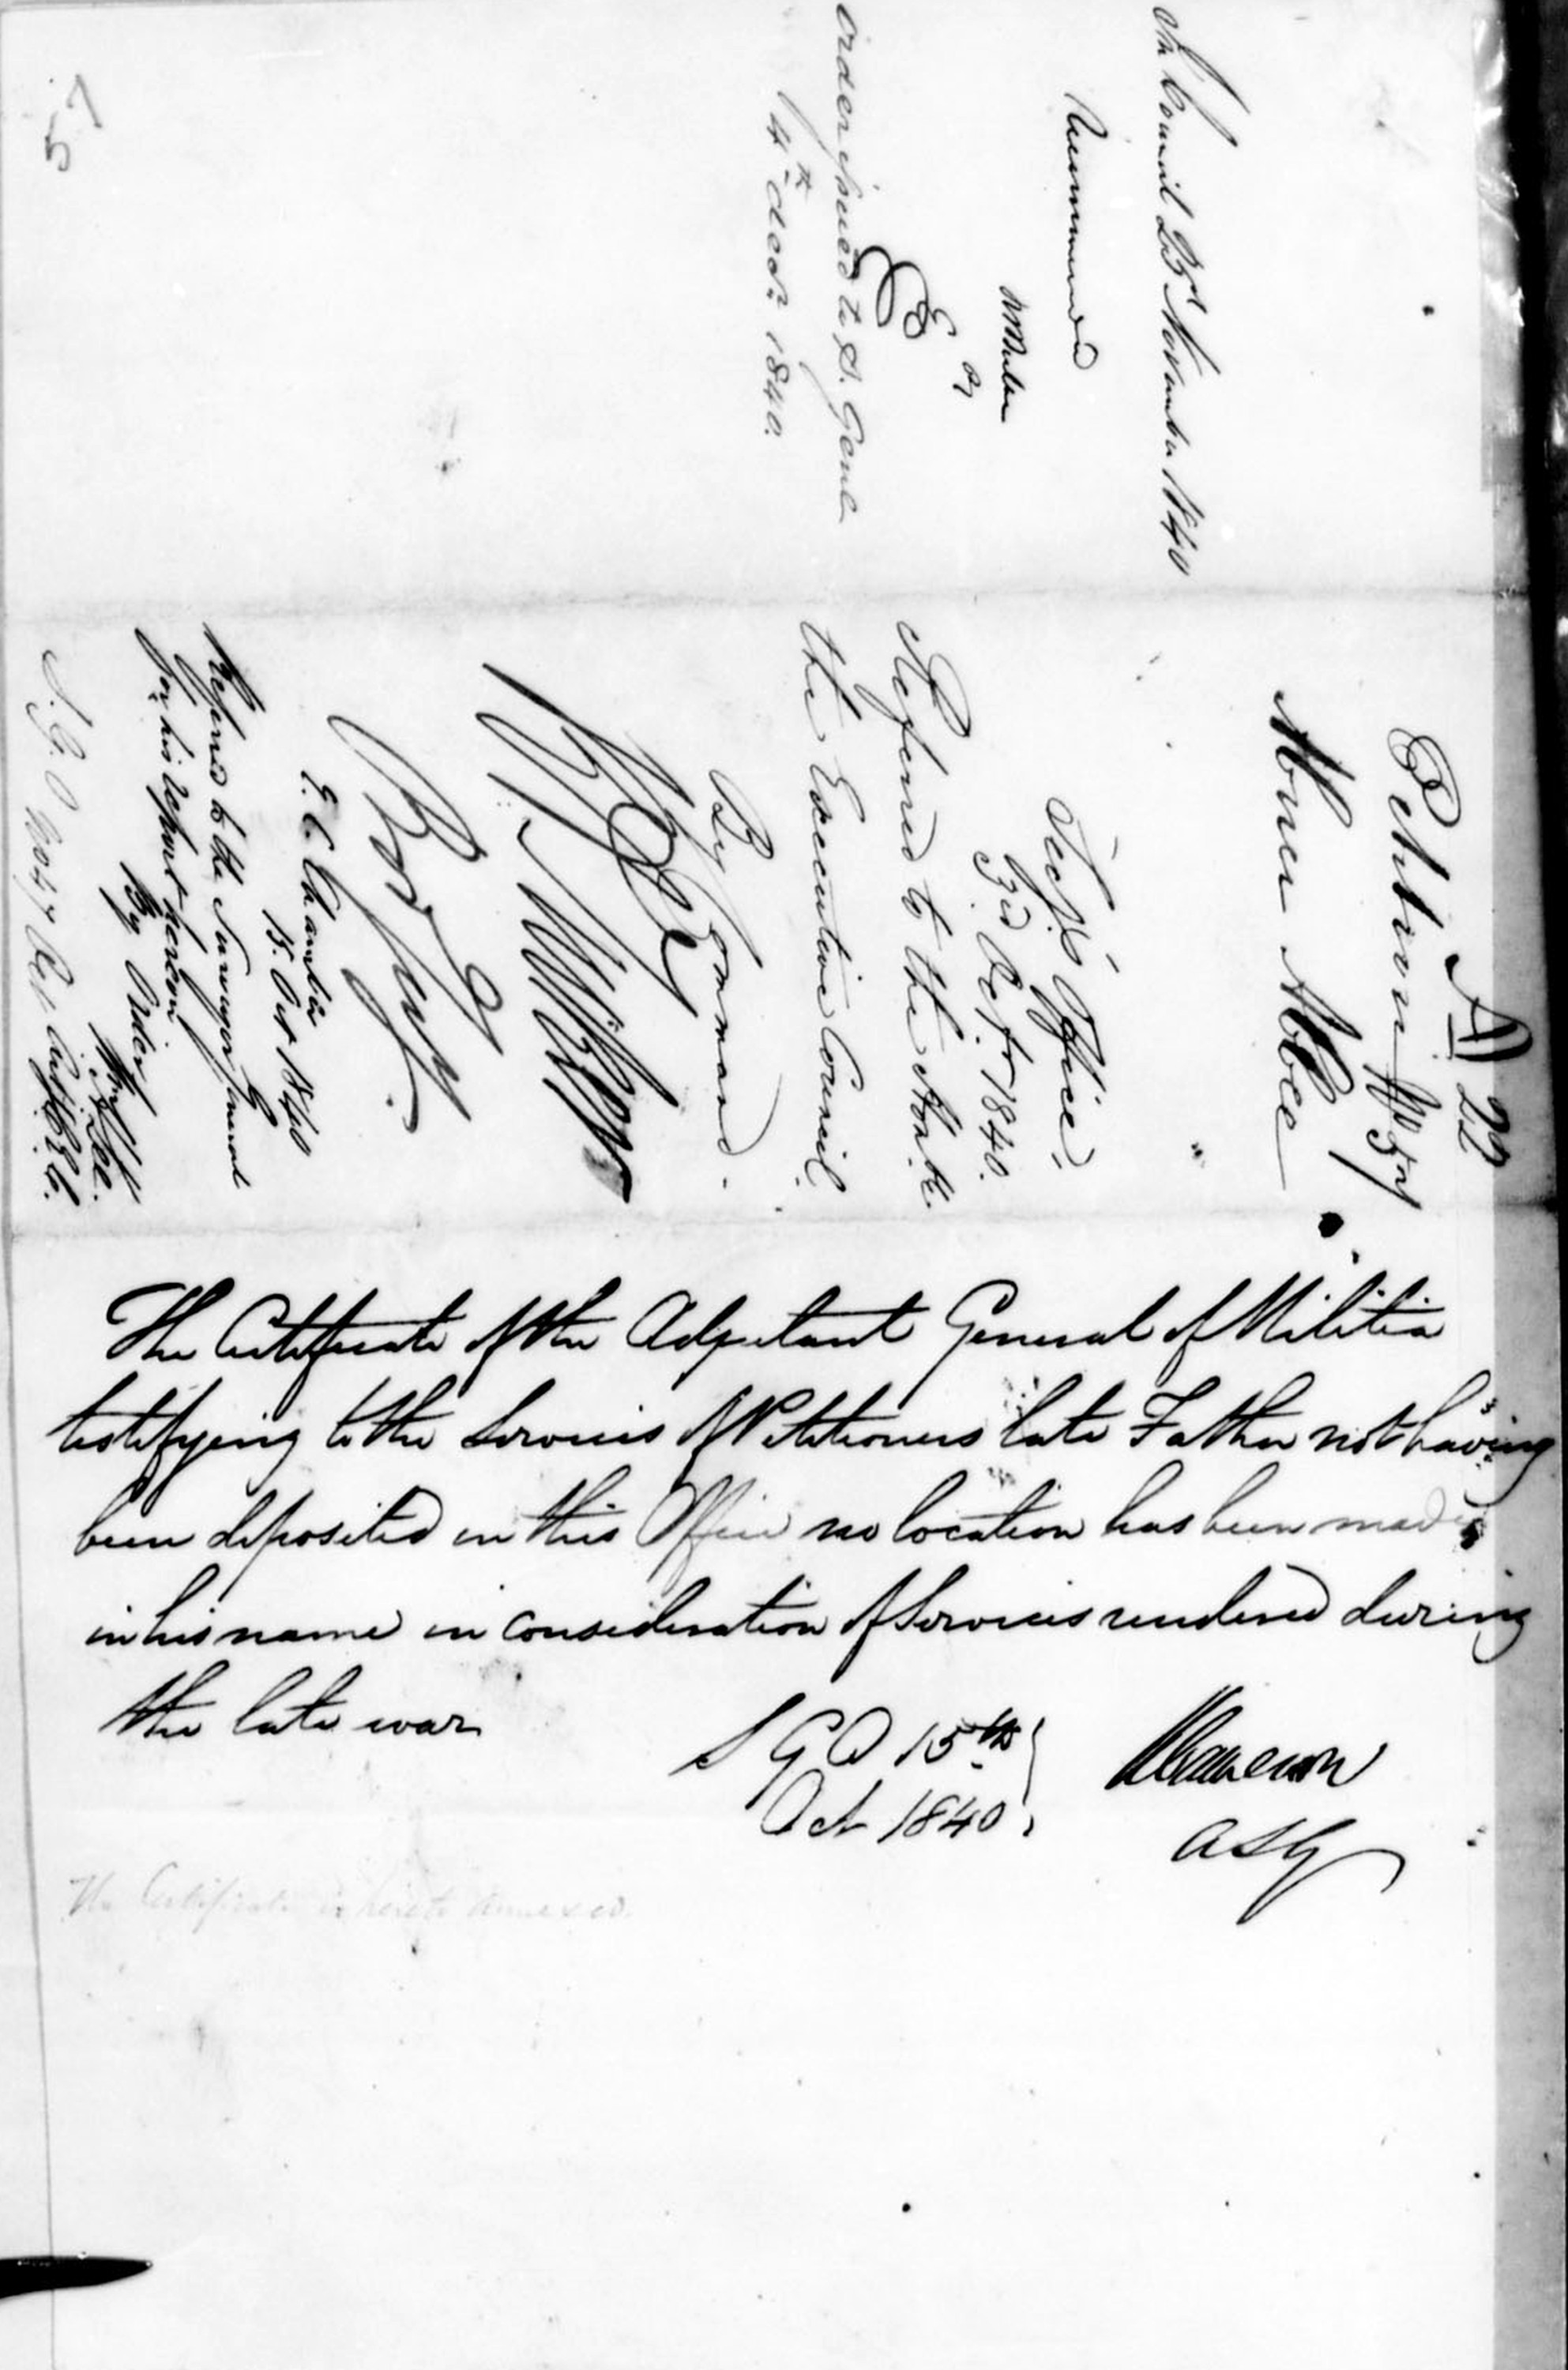 In Council 23rd November 1840
Recommended
Order issued to S. Genl
4th decr. 1840.
57
A 22
Petition No 57
Abner Abbee
Secy's Office,
3d Oct. 1840.
Referred to the Honble.
the Executive Council
By Command.
E. C. Chamber
15. Oct 1840
Referred to the Surveyor General
for his report hereon
By Order
The Certificate of the Adjutant General of Militia
testifying to the Services of Petitioners late Father not having
been deposited in this Office no location has been made
in his name in consideration of Services rendered during
the late war
S G O 15th
Oct 1840
ASG
The Certificate is hereto annexed.